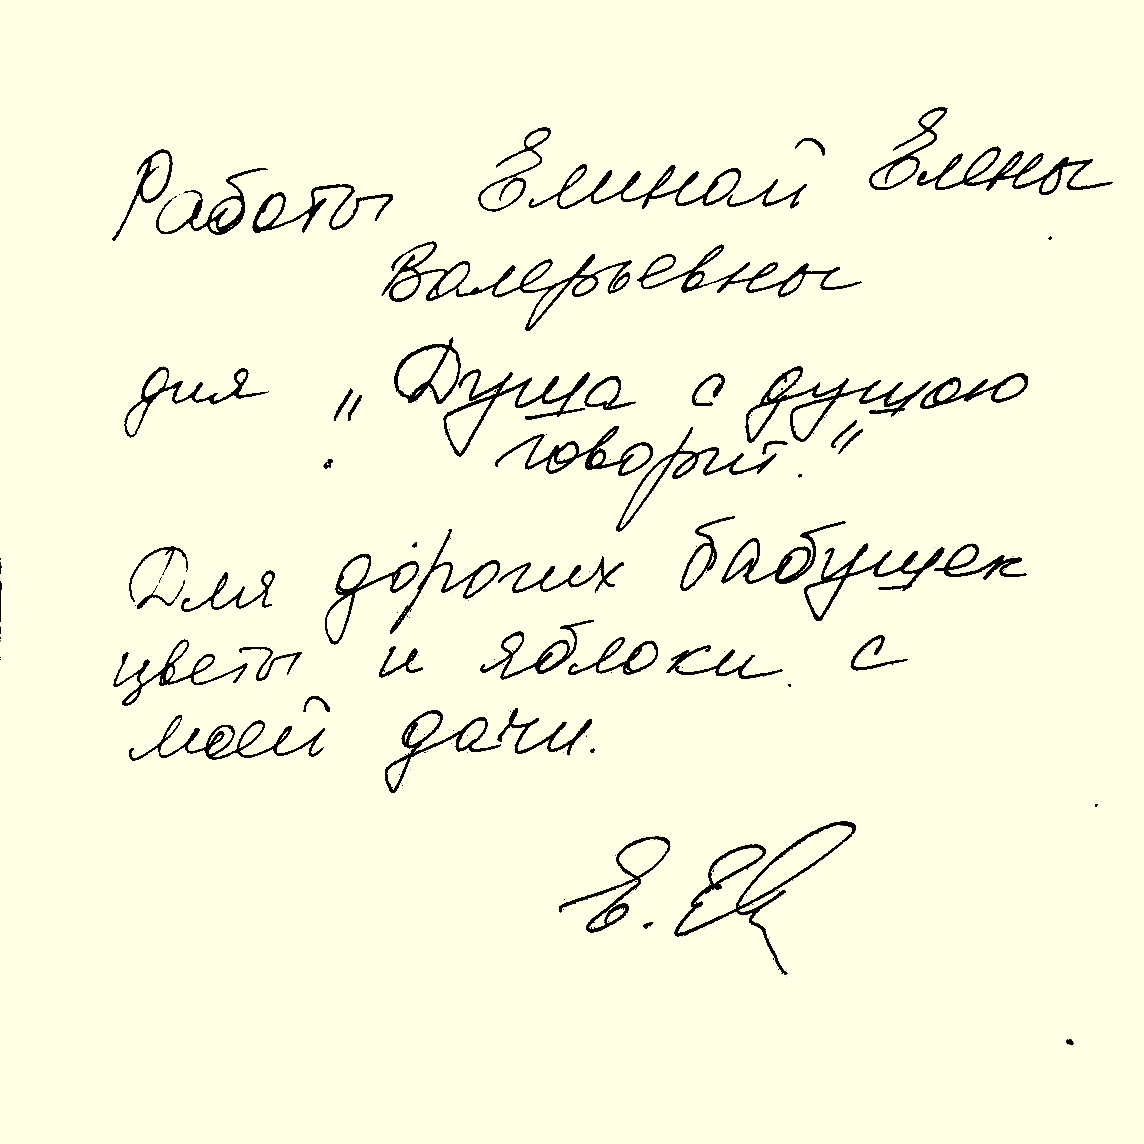 Работы Елиной Елены
Валерьевны
для "Душа с душою
говорит."
Для дорогих бабушек
цветы и яблоки с
моей дачи.